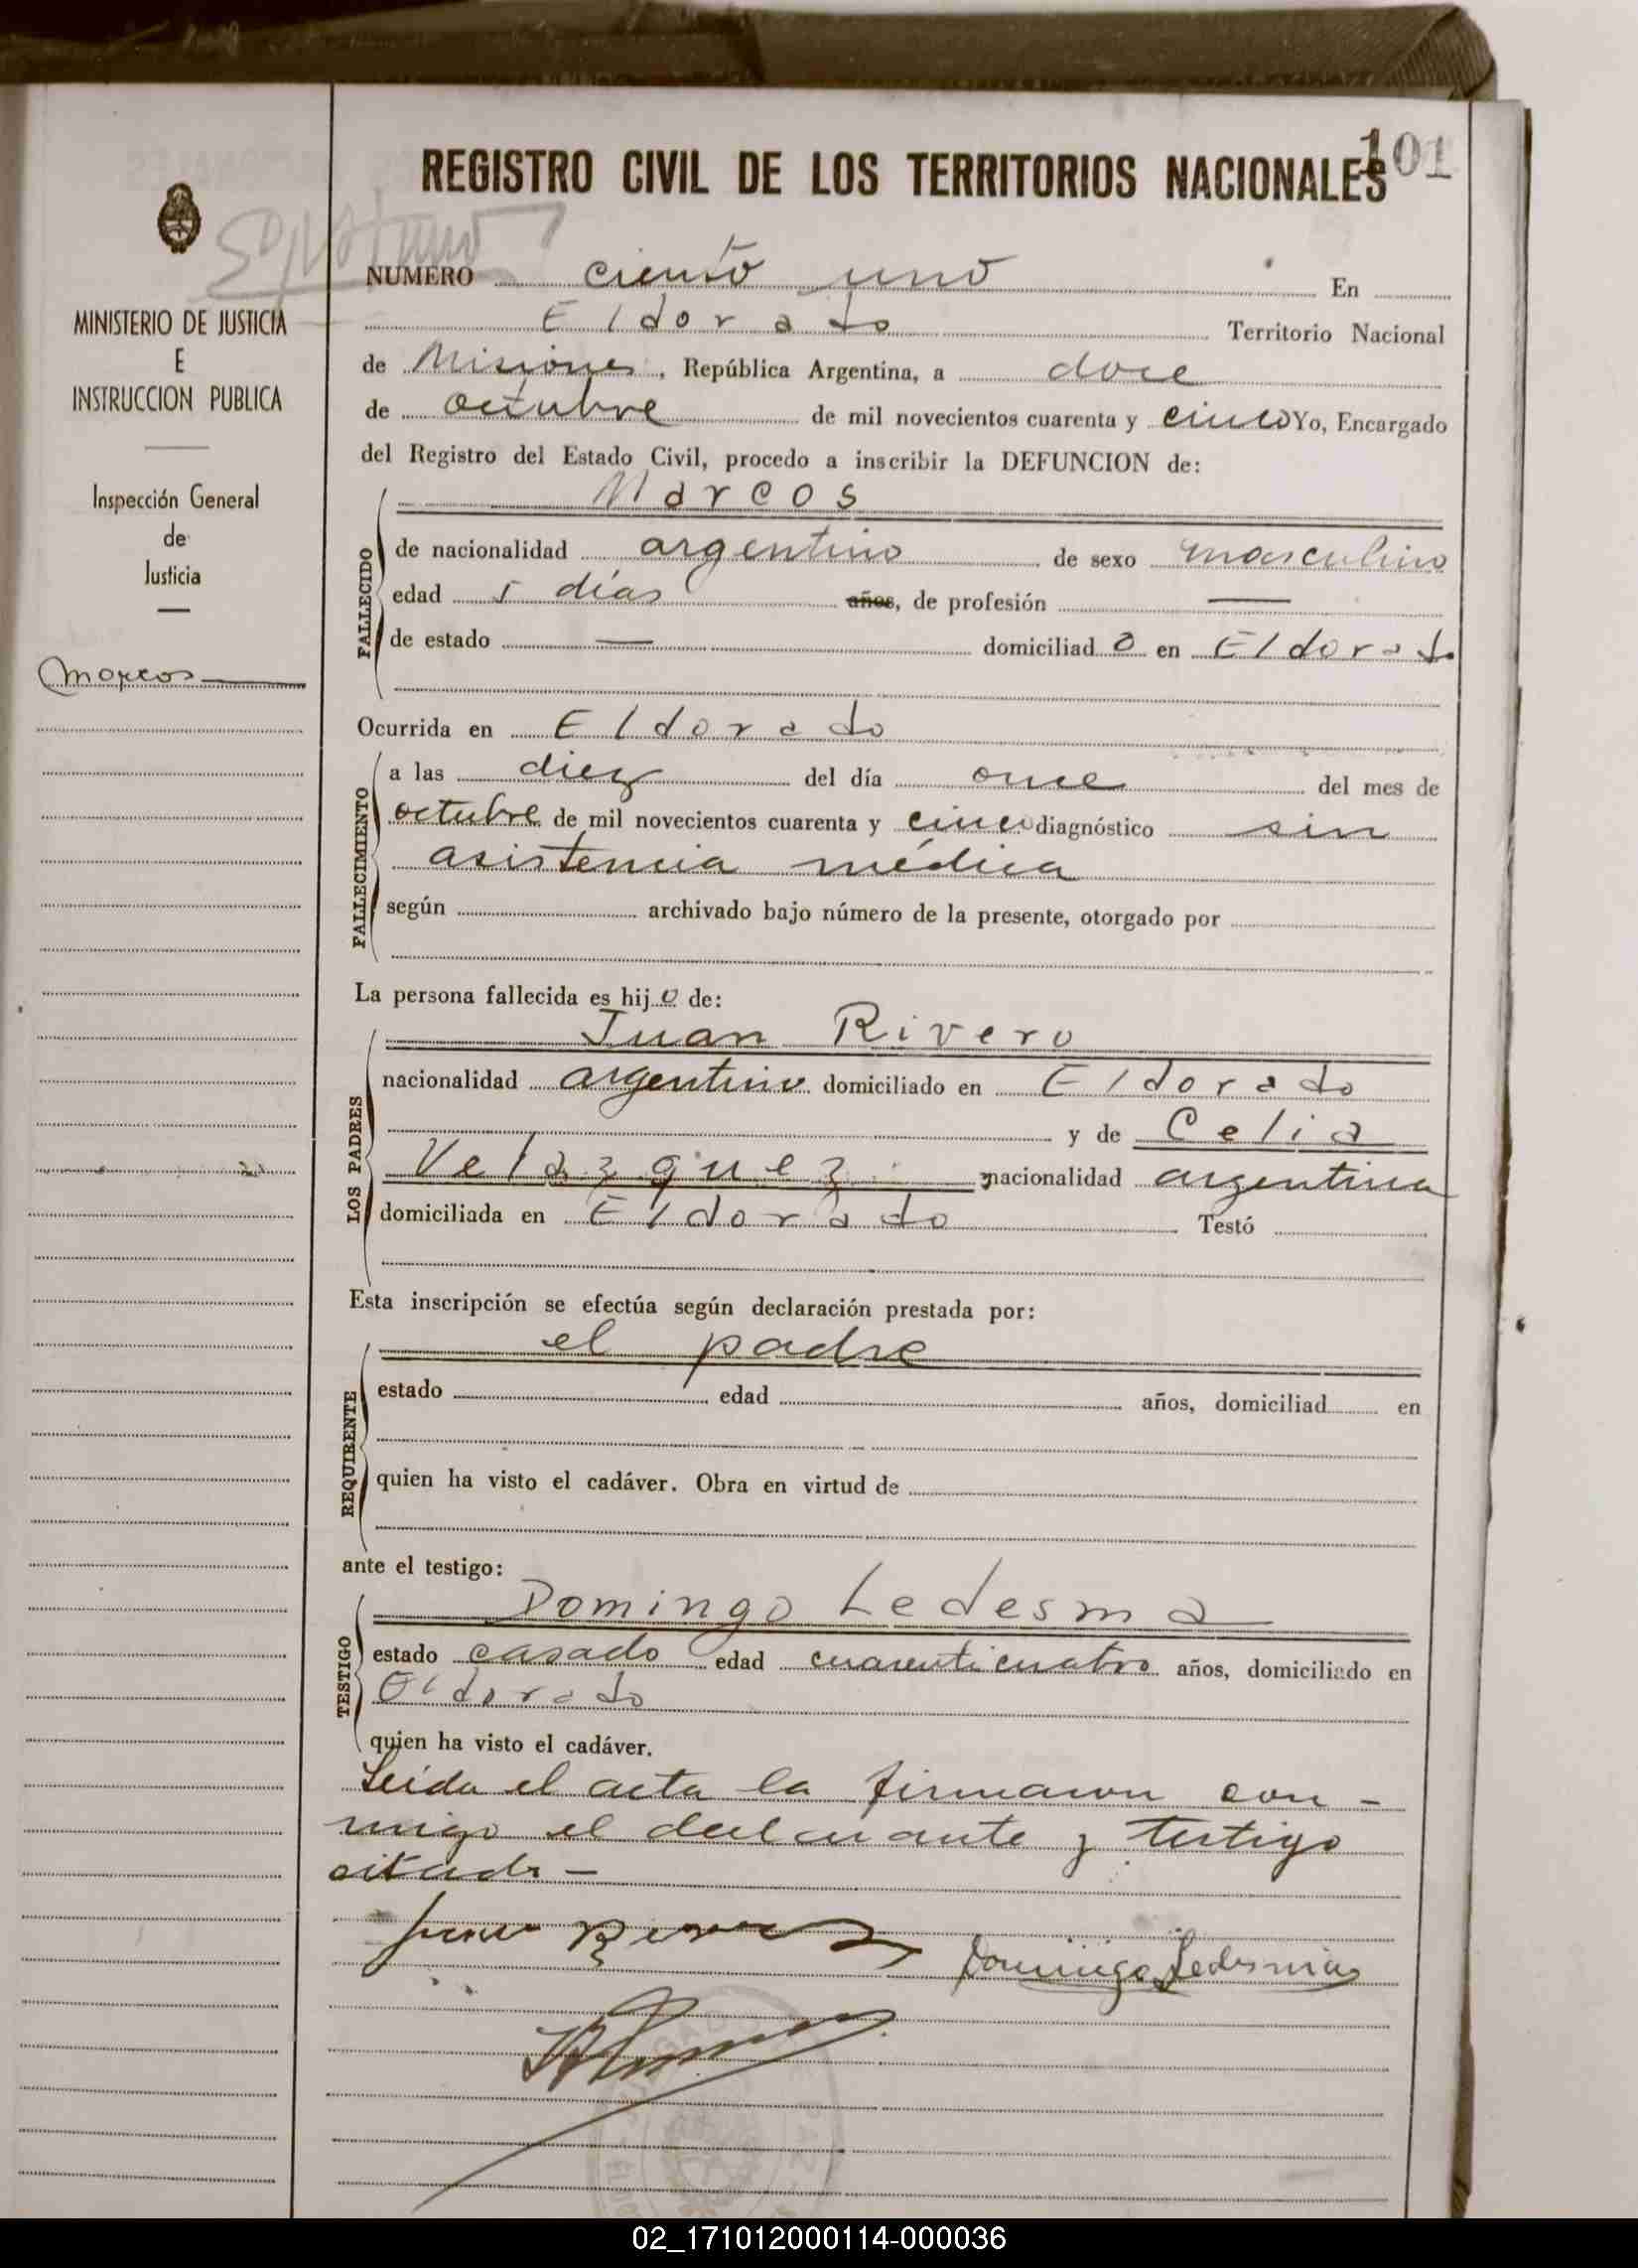 101
REGISTRO CIVIL DE LOS TERRITORIOS NACIONALES
MINISTERIO DE JUSTICIA
E
INSTRUCCION PUBLICA
Inspección General
de
Justicia
Marcos
NUMERO ciento uno En
Eldorado Territorio Nacional
de Misiones, República Argentina, a doce
de octubre de mil novecientos cuarenta y cinco Yo, Encargado
del Registro del Estado Civil, procedo a inscribir la DEFUNCION de:
Marcos
FALLECIDO
de nacionalidad argentino de sexo masculino
edad 5 días años, de profesión —
de estado — domiciliad o en Eldorado
Ocurrida en Eldorado
FALLECIMIENTO
a las diez del día once del mes de
octubre de mil novecientos cuarenta y cinco diagnóstico sin
asistencia médica
según archivado bajo número de la presente, otorgado por
La persona fallecida es hijo de:
LOS PADRES
Juan Rivero
nacionalidad argentino domiciliado en Eldorado
y de Celia
Velazquez nacionalidad argentina
domiciliada en Eldorado Testó
Esta inscripción se efectúa según declaración prestada por:
REQUIRENTE
el padre
estado edad años, domiciliad en
quien ha visto el cadáver. Obra en virtud de
ante el testigo:
TESTIGO
Domingo Ledesma
estado casado edad cuarenticuatro años, domiciliado en
Eldorado
quien ha visto el cadáver.
Leída el acta la firmaron con-
migo el declarante y testigo
citado –
Juan Rivero
Domingo Ledesma
02_171012000114-000036